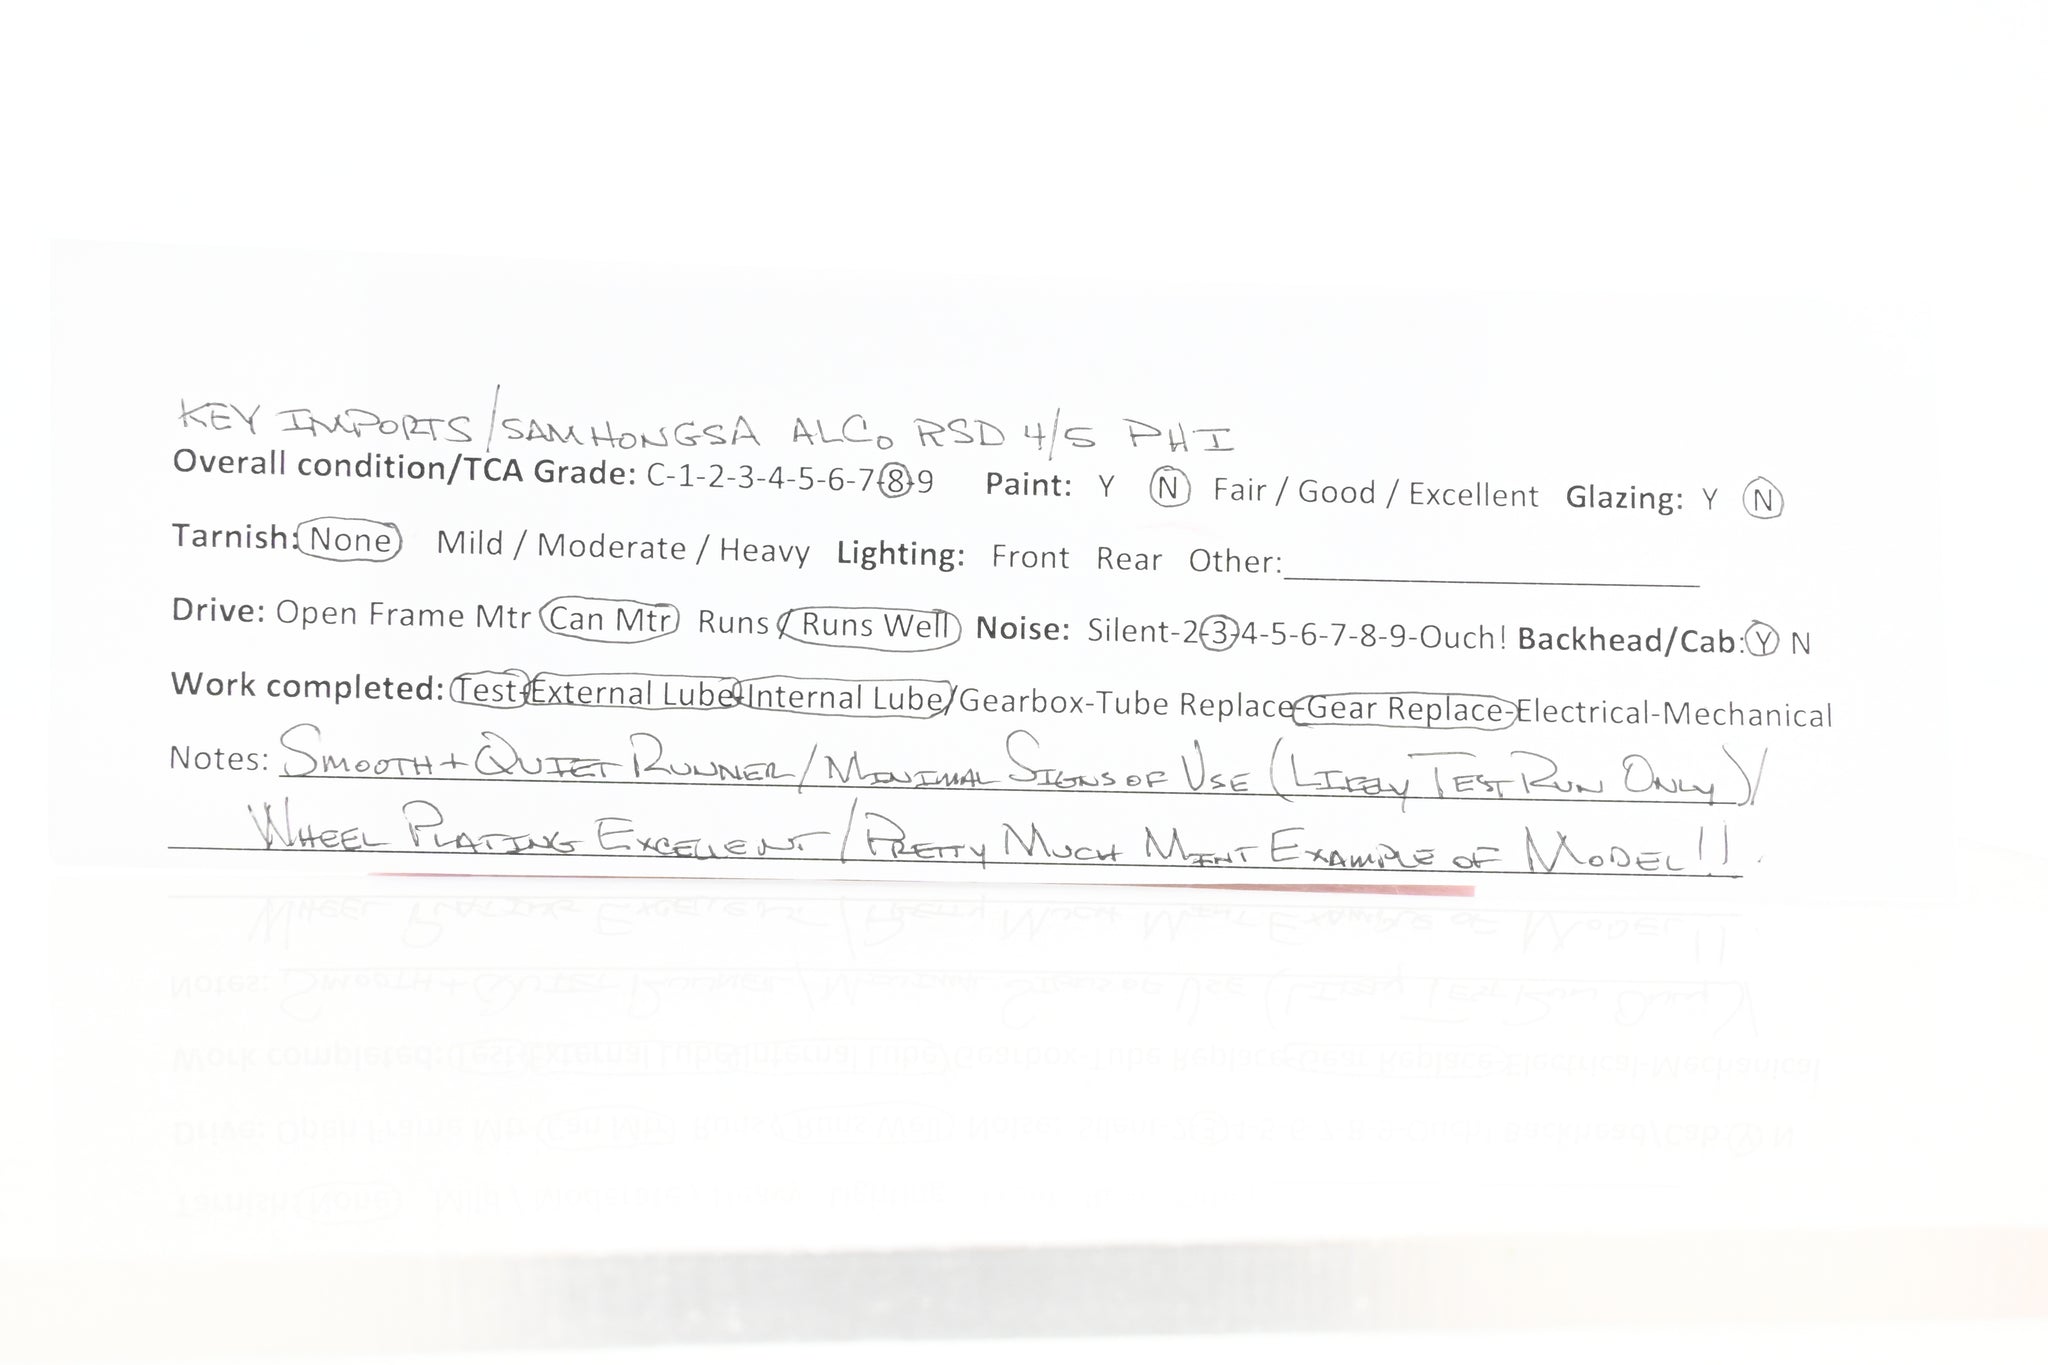 KEY IMPORTS/SAMHONGSA ALCo RSD 4/5 PH I
Overall condition/TCA Grade: C-1-2-3-4-5-6-7-8-9 Paint: Y N Fair / Good / Excellent Glazing: Y N
Tarnish: None Mild / Moderate / Heavy Lighting: Front Rear Other:
Drive: Open Frame Mtr Can Mtr Runs / Runs Well Noise: Silent-2-3-4-5-6-7-8-9-Ouch! Backhead/Cab: Y N
Work completed: Test-External Lube-Internal Lube/Gearbox-Tube Replace-Gear Replace-Electrical-Mechanical
Notes: SMOOTH + QUIET RUNNER/MINIMAL SIGNS OF USE (LIKELY TEST RUN ONLY)/
WHEEL PLATING EXCELLENT/PRETTY MUCH MINT EXAMPLE OF MODEL!!